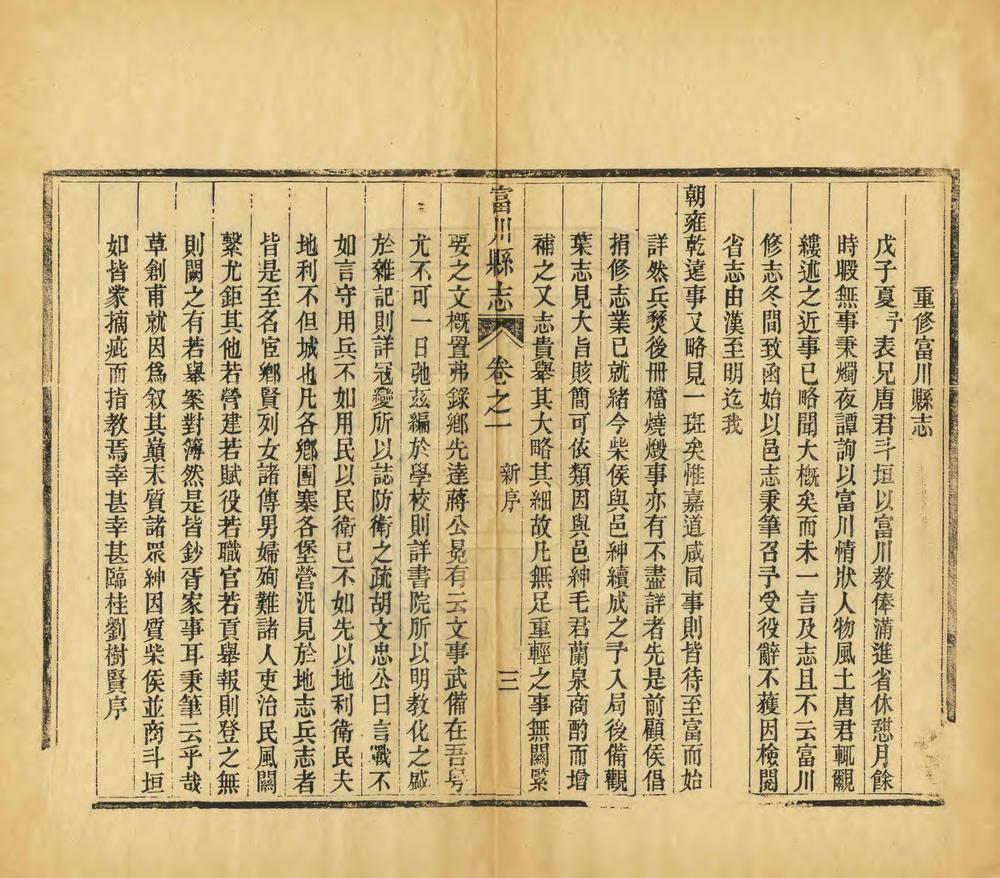 重修富川縣志
戊子夏予表兄唐君斗垣以富川教俸滿進省休憩月餘
時暇無事秉燭夜譚詢以富川情狀人物風土唐君輒覼
縷述之近事已略聞大槪矣而未一言及志且不云富川
修志冬間致函始以邑志秉筆召予受役辭不獲因檢閱
省志由漢至明迄我
朝雍乾遠事又略見一斑矣惟嘉道咸同事則皆待至富而始
詳然兵燹後冊檔燒燬事亦有不盡詳者先是前顧侯倡
捐修志業已就緒今柴侯與邑紳續成之予入局後備觀
葉志見大旨賅簡可依類因與邑紳毛君蘭泉商酌而增
補之又志貴舉其大略其細故凡無足重輕之事無關緊
富川縣志 卷之一 新序 三
要之文槪置弗錄鄉先達蔣公晃有云文事武備在吾粵
尤不可一日弛玆編於學校則詳書院所以明教化之盛
於雜記則詳寇變所以誌防衛之疏胡文忠公曰言戰不
如言守用兵不如用民以民衛已不如先以地利衛民夫
地利不但城也凡各鄉團寨各堡營汛見於地志兵志者
皆是至名宦鄉賢列女諸傳男婦殉難諸人吏治民風關
繫尤鉅其他若營建若賦役若職官若貢舉報則登之無
則闕之有若舉案對簿然是皆鈔胥家事耳秉筆云乎哉
草創甫就因爲叙其巔末質諸眾紳因質柴侯並商斗垣
如皆蒙摘疵而指教焉幸甚幸甚臨桂劉樹賢序